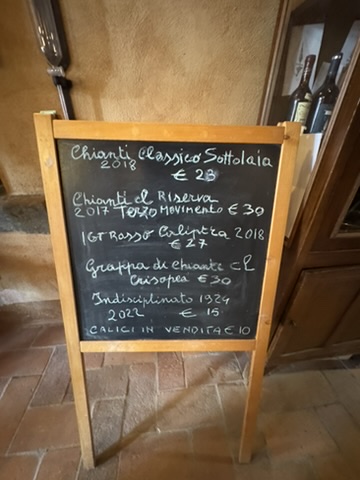 Chianti Classico Sottolaia
2018 € 23
Chianti cl Riserva
2017 Terzo Movimento € 39
IGT Rosso Caliptra 2018
€ 27
Grappa di chianti cl
Crisopea € 30
Indisciplinato 1924
2022 € 15
CALICI IN VENDITA € 10